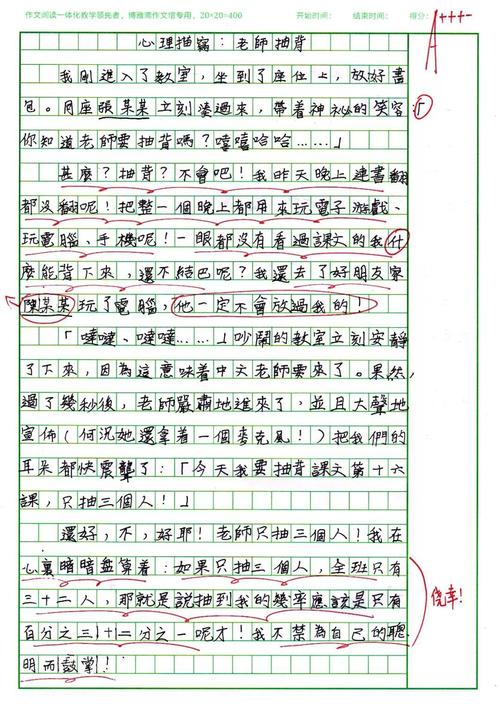 作文阅读一体化教学领先者，博雅斋作文馆专用，20×20=400 开始时间： 结束时间： 得分：
A+++-
心理描寫：老師抽背
我剛進入了教室，坐到了座位上，放好書
包。同座張某某立刻湊過來，帶着神祕的笑容
你知道老師要抽背嗎？嘻嘻哈哈……」
甚麼？抽背？不會吧！我昨天晚上連書翻
都没翻呢！把整一個晚上都用來玩電子游戲、
玩電腦、手機呢！一眼都没有看過課文的我什
麼能背下來，還不結巴呢？我還去了好朋友家
陳某某玩了電腦，他一定不會放過我的！
「噠噠、噠噠……」吵鬧的教室立刻安靜
了下來，因為這意味着中文老師要來了。果然，
過了幾秒後，老師嚴肅地進來了，並且大聲地
宣佈（何況她還拿着一個麥克風！）把我們的
耳朵都快震聾了：「今天我要抽背課文第十六
課，只抽三個人！」
還好，不，好耶！老師只抽三個人！我在
心裏暗暗盘算着：如果只抽三個人，全班只有
三十二人，那就是說抽到我的幾率應該是只有
百分之三十二分之一呢才！我不禁為自己的聰
明而鼓掌！
侥幸！